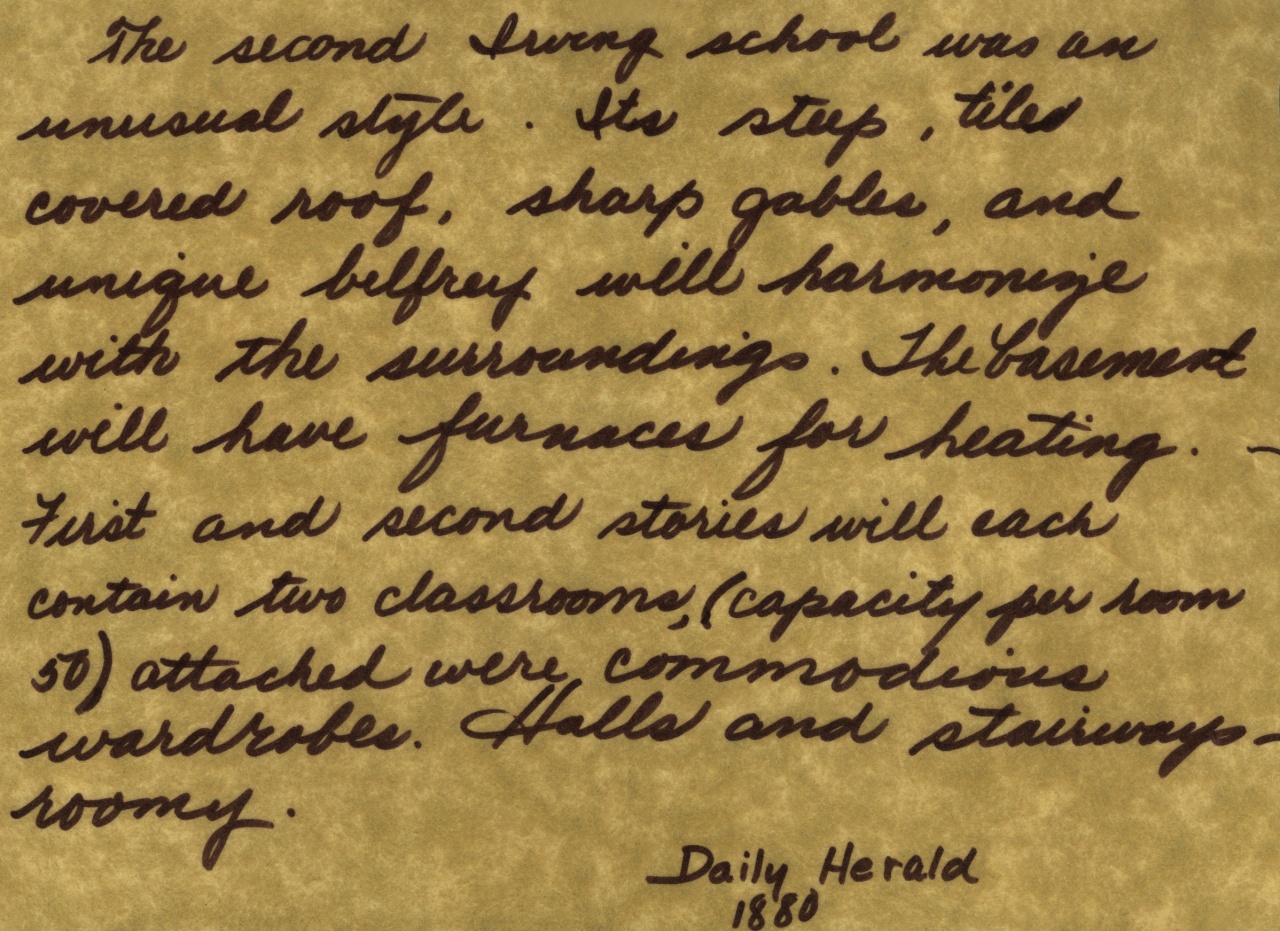 The second Irving school was an
unusual style. Its steep, tiled
covered roof, sharp gables, and
unique bellfrey will harmonize
with the surroundings. The basement
will have furnaces for heating. -
First and second stories will each
contain two classrooms, (capacity per room
50) attached were commodious
wardrobes. Halls and stairways -
roomy.
Daily Herald
1880